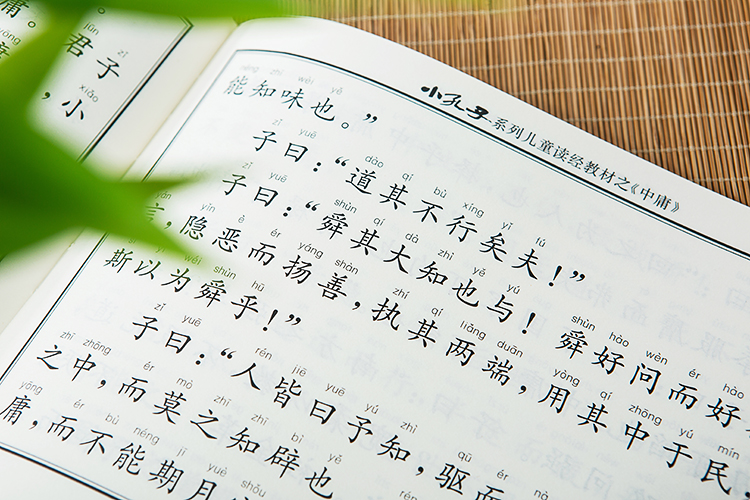 庸。
jūn zǐ
君子
xiǎo
，小
小孔子系列儿童读经教材之《中庸》
néng zhī wèi yě
能知味也。”
zǐ yuē dào qí bù xíng yǐ fú
子曰：“道其不行矣夫！”
zǐ yuē shùn qí dà zhì yě yú shùn hào wèn ér hào
子曰：“舜其大知也与！舜好问而好
yǐn è ér yáng shàn zhí qí liǎng duān yòng qí zhōng yú mín
言，隐恶而扬善，执其两端，用其中于民，
shùn hū
斯以为舜乎！”
zǐ yuē rén jiē yuē yú zhì qū ér
子曰：“人皆曰予知，驱而
zhī zhōng ér mò zhī zhī bì yě
之中，而莫之知辟也
yōng ér bù néng jī yuè shǒu
庸，而不能期月